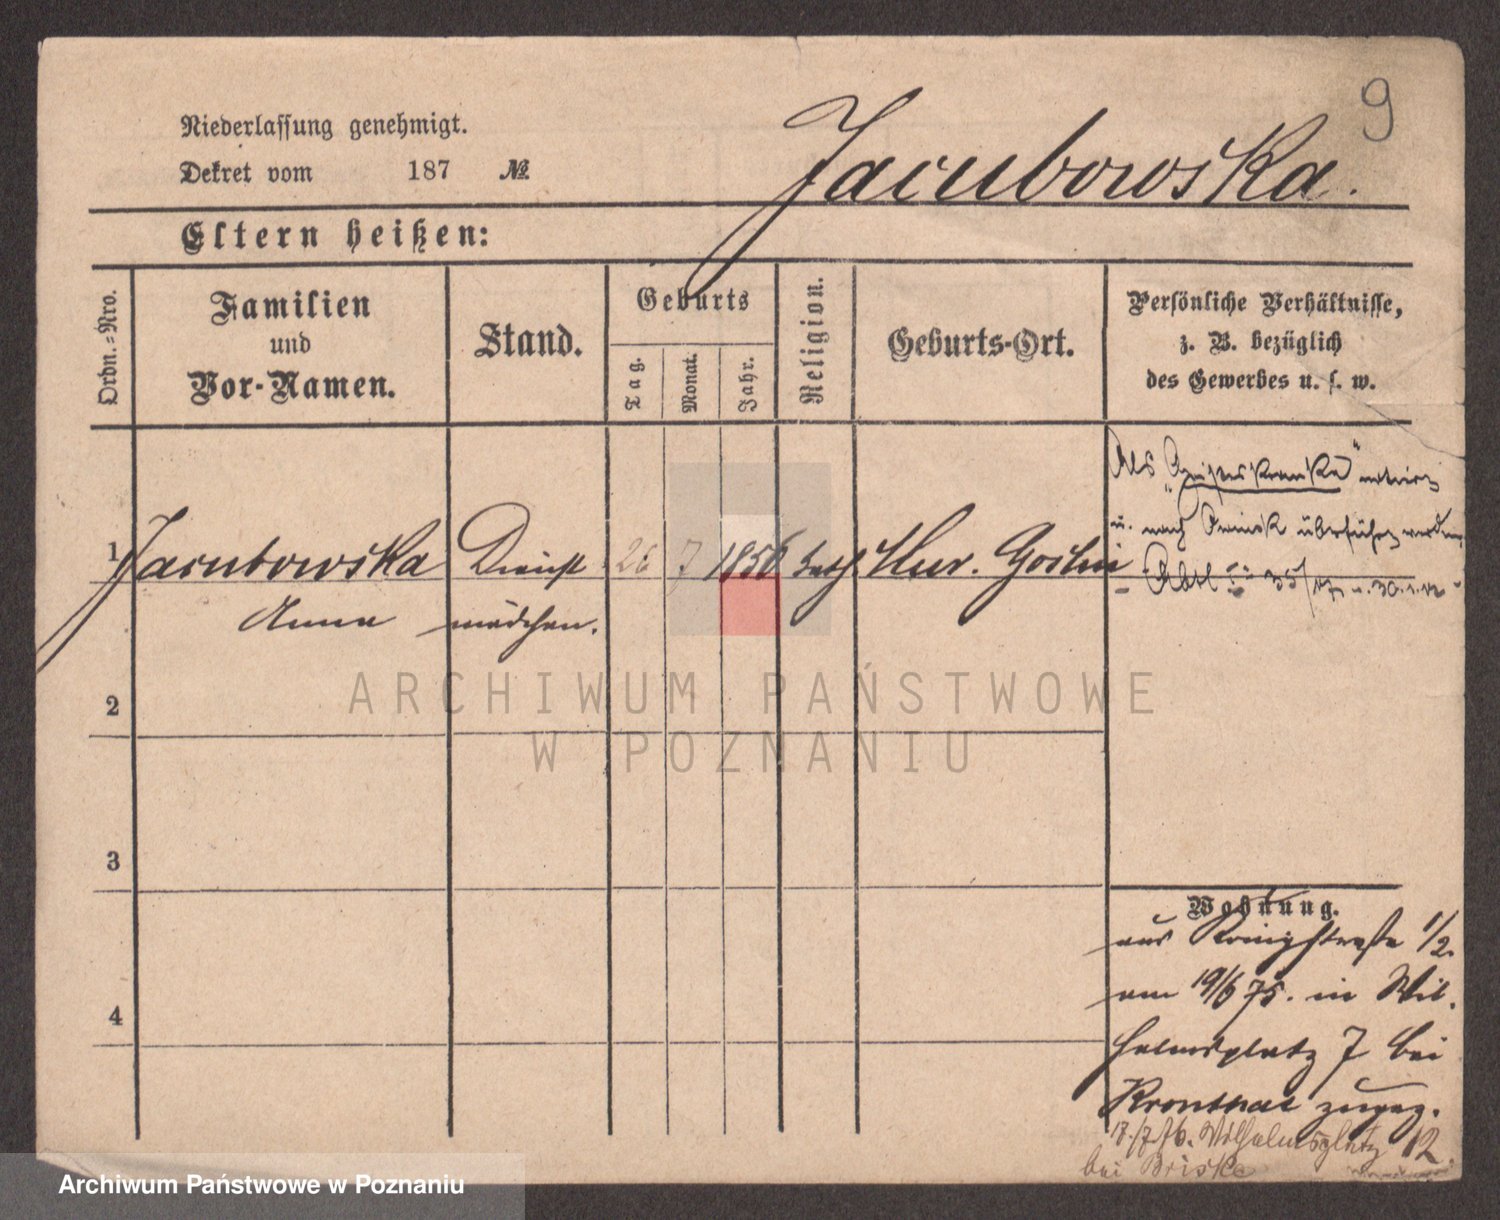 9
Niederlassung genehmigt.
Dekret vom 187 №
Jacubowska.
Eltern heißen:
Ordn.-Nro.
Familien
und
Vor-Namen.
Stand.
Geburts
Tag.
Monat.
Jahr.
Religion.
Geburts-Ort.
Persönliche Verhältnisse,
z. B. bezüglich
des Gewerbes u. s. w.
Als "Geisteskranke"
u. nach überführt worden
1 Jacubowska Dienst 26 7 1856 kath. Mur. Goslin
Anna mädchen.
2
3
4
ARCHIWUM PAŃSTWOWE
W POZNANIU
Wohnung.
aus Königstraße 1/2.
am 19/6 75. in Wil-
helmsplatz 7 bei
Kronthal zugez.
17./7.76. Wilhelmsplatz 12.
bei Briske
Archiwum Państwowe w Poznaniu